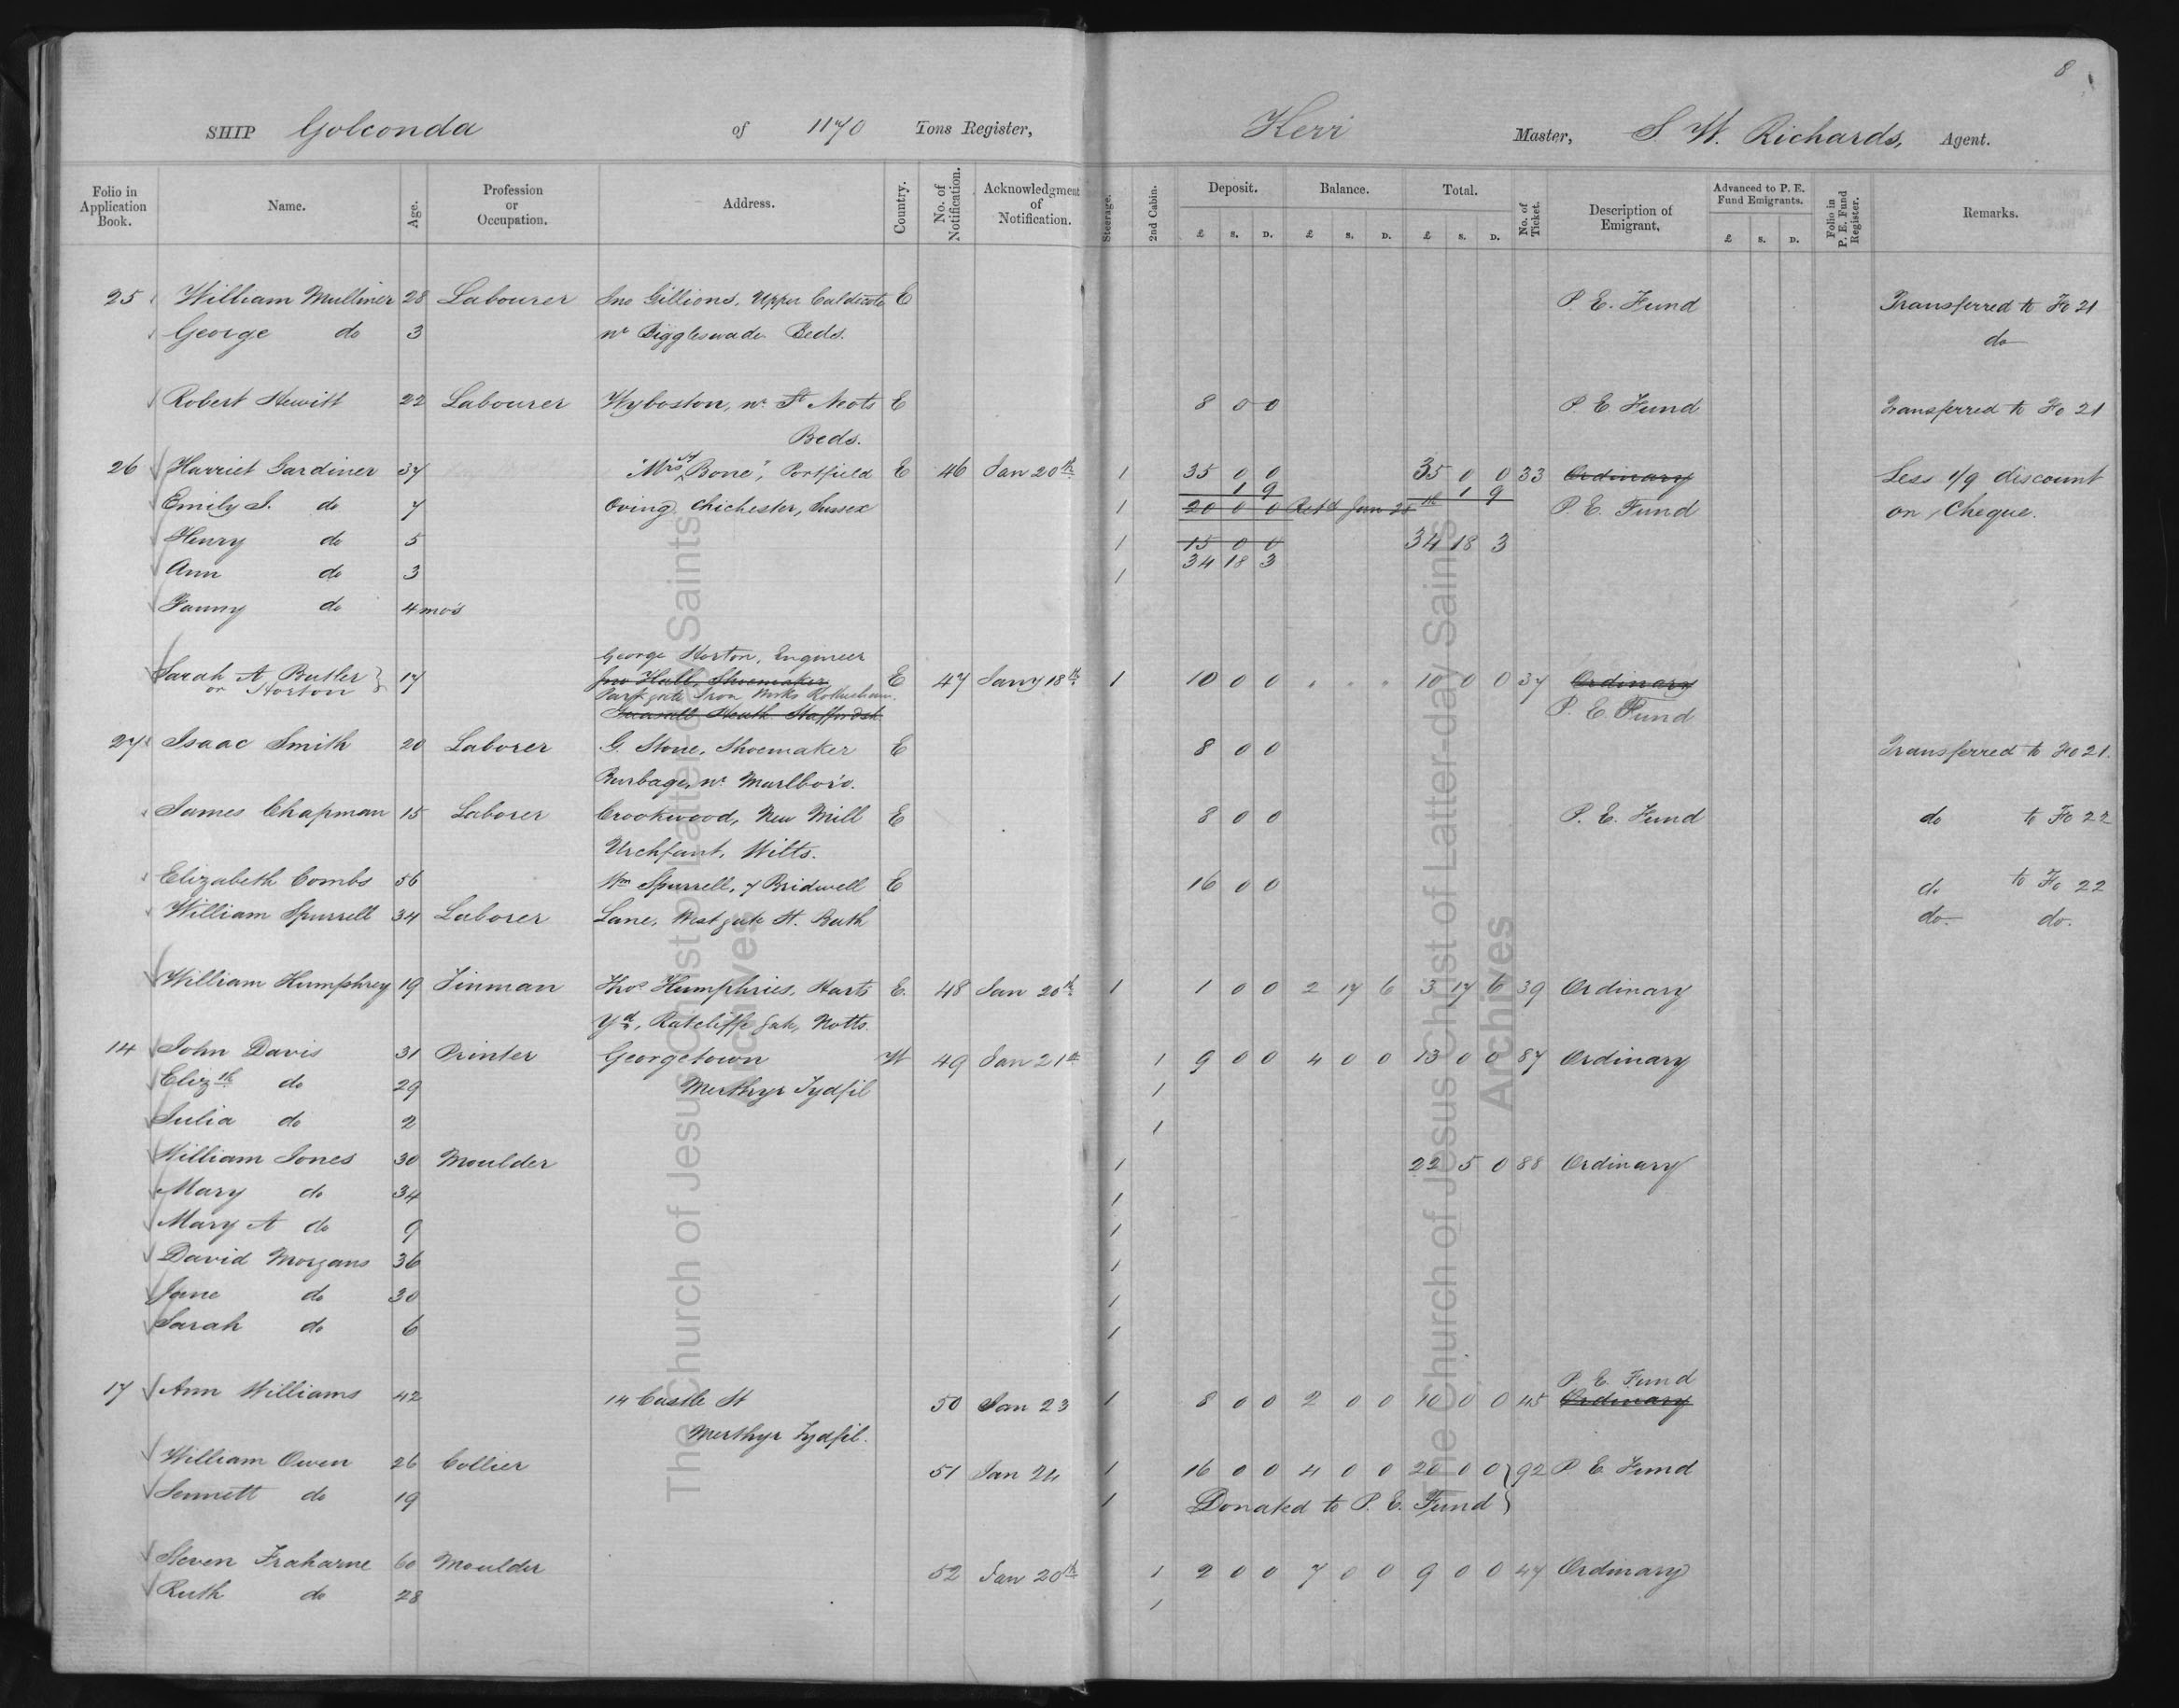 8
SHIP Golconda of 1170 Tons Register, Kerr Master, S. W. Richards, Agent.
Folio in Application Book. Name. Age. Profession or Occupation. Address. Country. No. of Notification. Acknowledgment of Notification. Steerage. 2nd Cabin. Deposit. Balance. Total. No. of Ticket. Description of Emigrant. Advanced to P. E. Fund Emigrants. Folio in P. E. Fund Register. Remarks.
£ S. D. £ S. D. £ S. D. £ S. D.
25 William Mulliner 28 Labourer Jno Gillions, Upper Caldecote E P. E. Fund Transferred to Fo 21
George do 3 nr Biggleswade Beds. do
Robert Hewitt 22 Labourer Wyboston, nr St Neots E 8 0 0 P. E. Fund Transferred to Fo 21
Beds.
26 Harriet Gardiner 37 "Mrs Bone", Portfield E 46 Jan 20th 1 35 0 0 35 0 0 33 Ordinary Less 1/9 discount
1 9 1 9
Emily S. do 7 Oving, Chichester, Sussex 1 20 0 0 Retd Jan 25th P. E. Fund on Cheque.
Henry do 5 1 15 0 0 34 18 3
Ann do 3 1 34 18 3
Fanny do 4 mos
George Horton, Engineer
Sarah A Butler } 17 Jno Hall, Shoemaker E 47 Jany 18th 1 10 0 0 " " " 10 0 0 37 Ordinary
or Horton Park gate Iron Works Rotherham.
Heath Staffordsh P. E. Fund
27 Isaac Smith 20 Laborer G. Stone, Shoemaker E 8 0 0 Transferred to Fo 21.
Burbage, nr Marlboro'.
James Chapman 15 Laborer Crookwood, New Mill E 8 0 0 P. E. Fund do to Fo 22
Urchfont, Wilts.
Elizabeth Combs 56 Wm Spurrell, 7 Bridwell E 16 0 0 do to Fo 22
William Spurrell 34 Laborer Lane, Westgate St. Bath do do.
William Humphrey 19 Tinman Thos Humphries, Harts E. 48 Jan 20th 1 1 0 0 2 17 6 3 17 6 39 Ordinary
Yd, Ratcliffe Gate, Notts.
14 John Davis 31 Printer Georgetown W 49 Jan 21st 1 9 0 0 4 0 0 13 0 0 87 Ordinary
Elizth do 29 Merthyr Tydfil 1
Julia do 2 1
William Jones 30 Moulder 1 22 5 0 88 Ordinary
Mary do 34 1
Mary A do 9 1
David Morgans 36 1
Jane do 30 1
Sarah do 6 1
P. E. Fund
17 Ann Williams 42 14 Castle St 50 Jan 23 1 8 0 0 2 0 0 10 0 0 45 Ordinary
Merthyr Tydfil.
William Owen 26 Collier 51 Jan 24 1 16 0 0 4 0 0 20 0 0 } 92 P E. Fund
Jennett do 19 1 Donated to P. E. Fund }
Steven Traharne 60 Moulder 52 Jan 20th 1 2 0 0 7 0 0 9 0 0 47 Ordinary
Ruth do 28 1
The Church of Jesus Christ of Latter-day Saints
Archives
The Church of Jesus Christ of Latter-day Saints
Archives